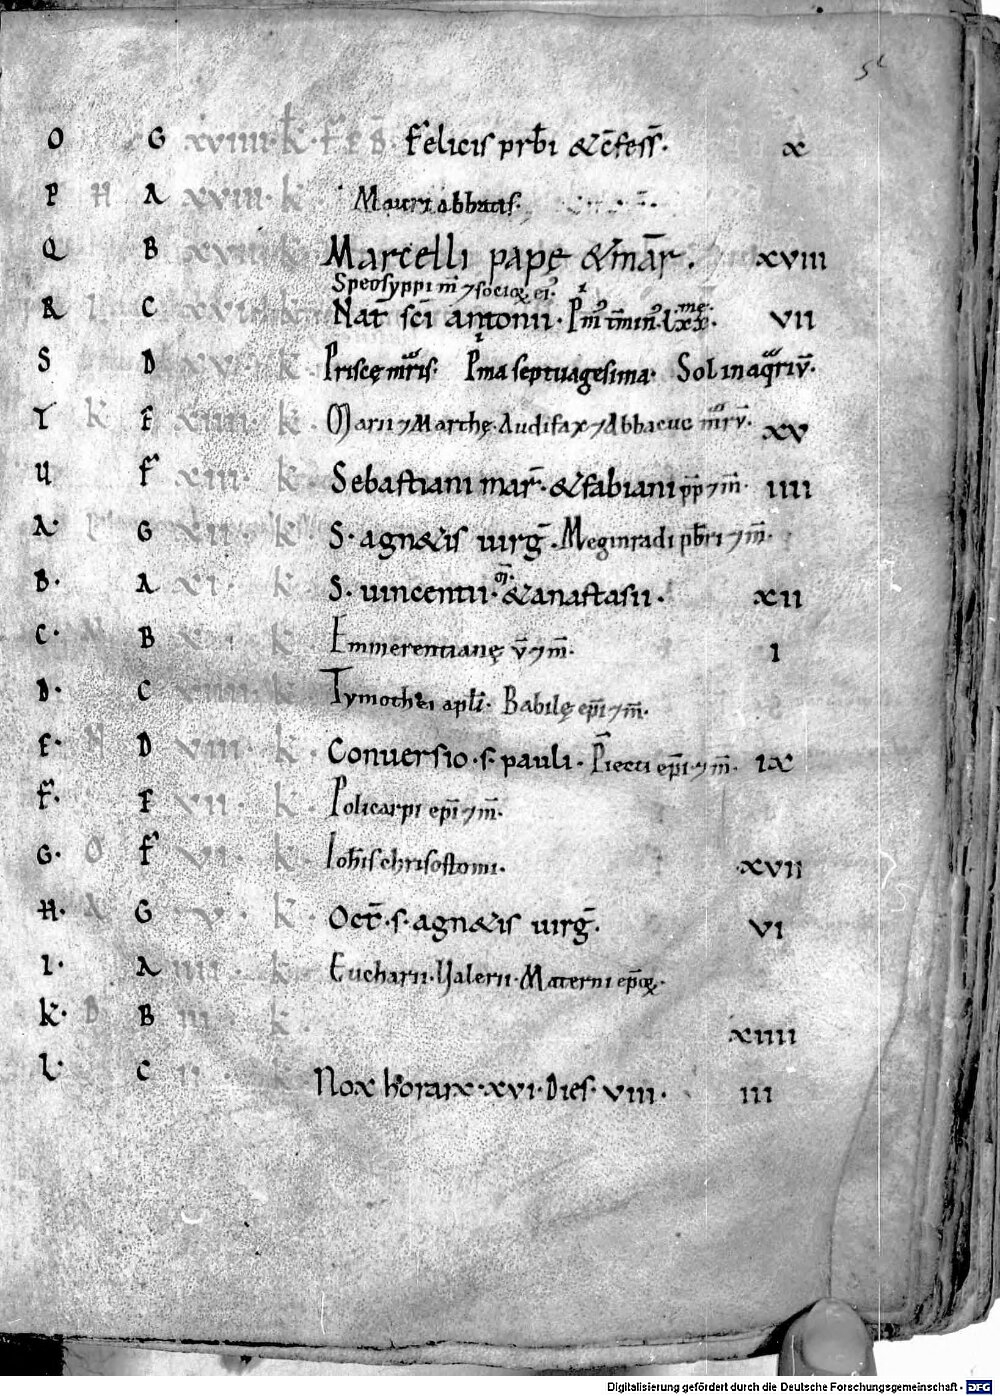 5
O G xviiii k F E B Felicis prb̄i &c̄fess̄. x
P H A xviii k Mauri abbatis.
Q B xvii k Marcelli papę &mār. xviii
Speosyppi m̄ ⁊ socioꝝ ei'.
R I C xvi k Nat̄ sc̄i antonii. P'm' t'min' lxx.me. vii
S D xv k Priscę mr̄is. P'ma septuagesima. Sol in aqriv̄.
T K E xiiii k Marii ⁊ Marthę. Audifax ⁊ Abbacuc mr̄v̄. xv
U F xiii k Sebastiani mar̄. &fabiani pp ⁊ m̄. iiii
A. G xii k S. agn&is uirḡ. Meginradi pb̄ri ⁊ m̄.
B. A xi k S. uincentii. m̄. &anastasii. xii
C. N B x k Emmerentianę v̄ ⁊ m̄. i
D. C viiii k Tymothei apl̄i. Babilę ep̄i ⁊ m̄.
E. N D viii k Conuersio. s. pauli. P̄iecti ep̄i. ⁊ m̄. ix
F. E vii k Policarpi ep̄i ⁊ m̄.
G. O F vi k Ioh̄is chrisostomi. xvii
H. G v k Oct̄. s. agn&is uirḡ. vi
I. A iiii k Eucharii. Ualerii. Materni ep̄oꝝ.
K. B iii k xiiii
L. C ii k Nox horarx. xvi. Dies. viii. iii
Digitalisierung gefördert durch die Deutsche Forschungsgemeinschaft - DFG